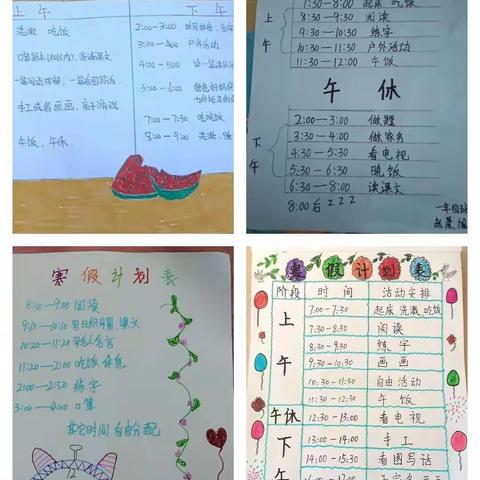 上午
洗漱 吃饭
手工或者画画，亲子游戏
午饭、午休。
下午
2:00—3:00
3:00—4:00 户外活动
4:00—5:00
3:00—6:00
7:00—7:30 吃晚饭
8:00—9:00 洗漱、睡
上午
7:30—8:00 起床 吃饭
8:30—9:30 阅读
9:30—10:30 练字
10:30—11:30 户外活动
11:30—12:00 午饭
午 休
下午
2:00—3:00 做题
3:30—4:00 做家务
4:30—5:30 看电视
5:30—6:30 晚饭
6:30—8:00 读课文
8:00后 z z z
寒假计划表
8:30—9:00 阅读
9:10—10:10
10:20—11:20
11:20—2:00 吃饭、休息
2:00—2:50 练字
3:00—4:00 口算
其它时间 自由分配
寒假计划表
阶段 时间 活动安排
上午
7:00-7:30 起床 洗漱 吃饭
7:30-8:30 阅读
8:30-9:30 练字
9:30-10:30 画画
10:30-11:30 自由活动
11:30-12:30 午饭
午休 12:30-13:00 看电视
下午
13:00-14:00 手工
14:00-15:30 看图写话